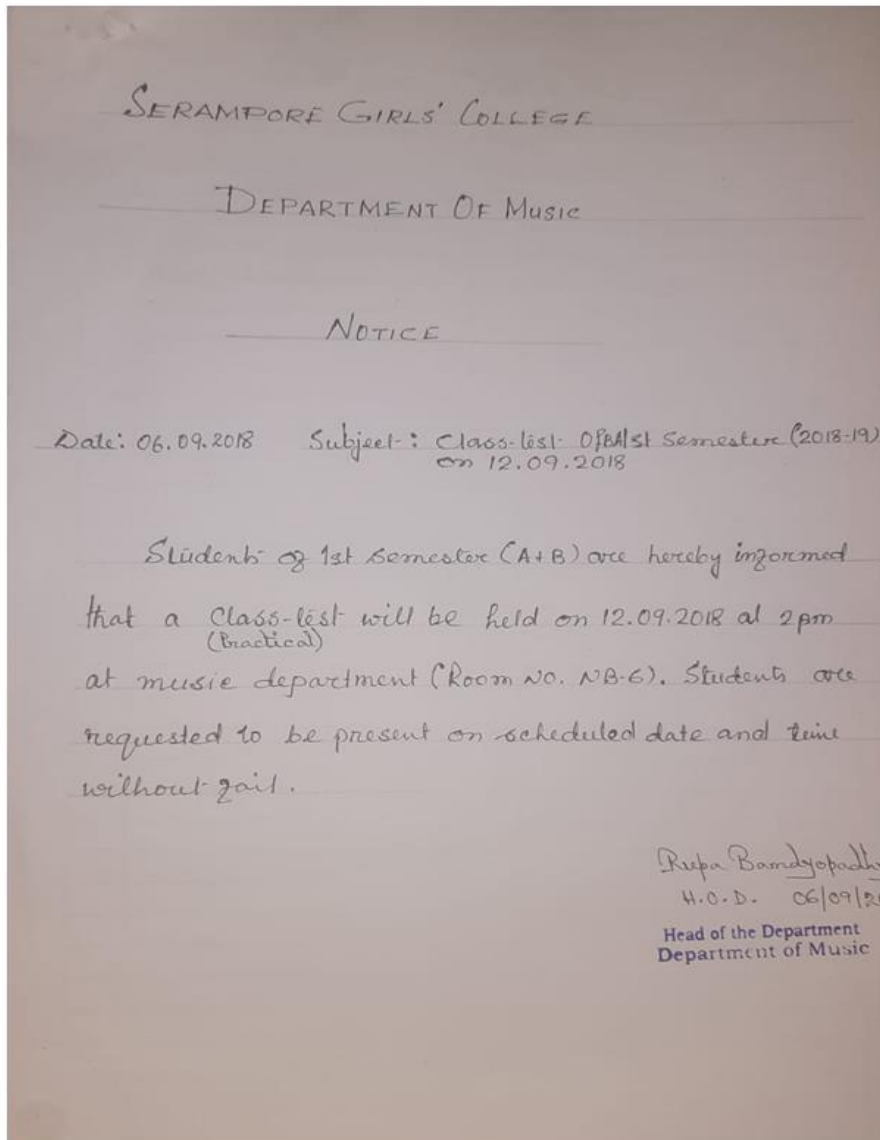 SERAMPORE GIRLS' COLLEGE
DEPARTMENT OF Music
NOTICE
Date: 06.09.2018 Subject: Class-test Of BA 1st Semester (2018-19)
on 12.09.2018
Students of 1st semester (A+B) are hereby informed
that a Class-test will be held on 12.09.2018 at 2pm
(Practical)
at music department (Room No. NB-6). Students are
requested to be present on scheduled date and time
without fail.
Rupa Bandyopadhy
H.O.D. 06/09/20
Head of the Department
Department of Music